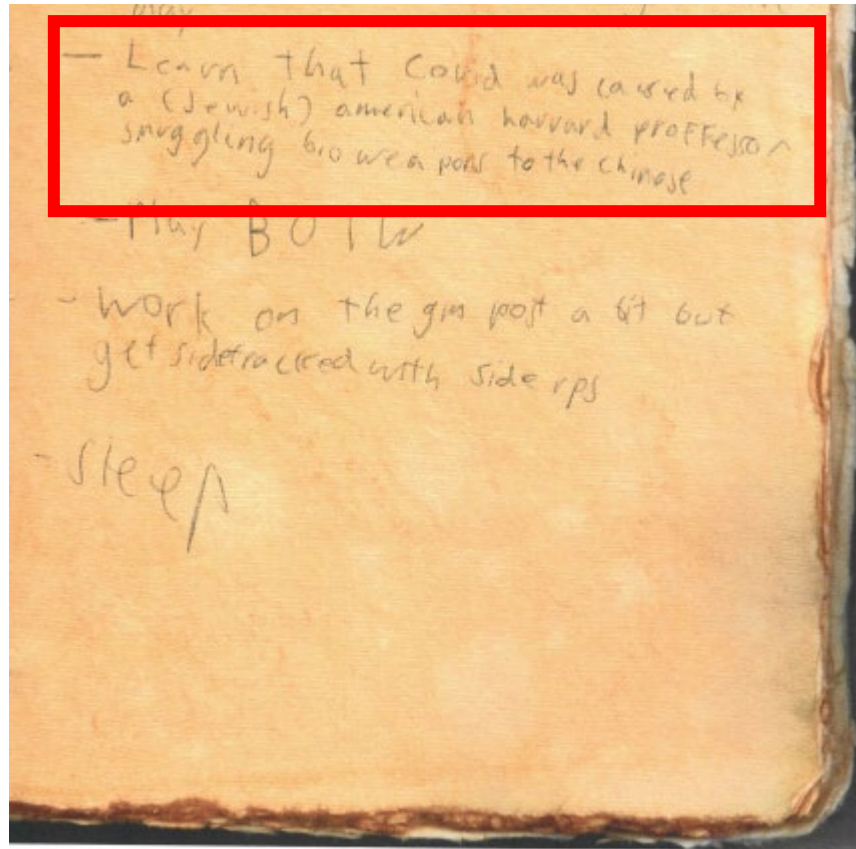 — Learn that Covid was caused by
a (Jewish) american harvard proffessor
smuggling bioweapons to the chinese
- Play BOTW
- work on the gm post a bit but
get sidetracked with side rps
- sleep